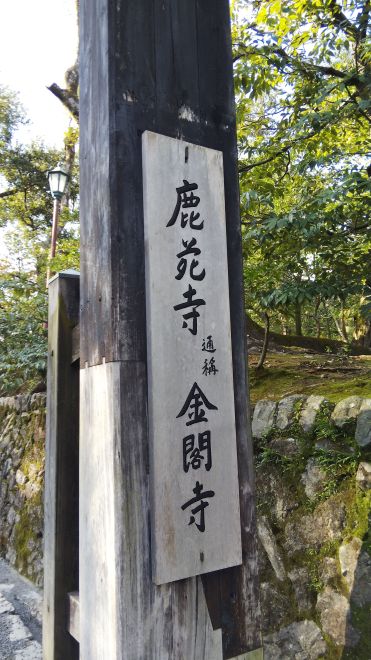 鹿苑寺 通稱 金閣寺